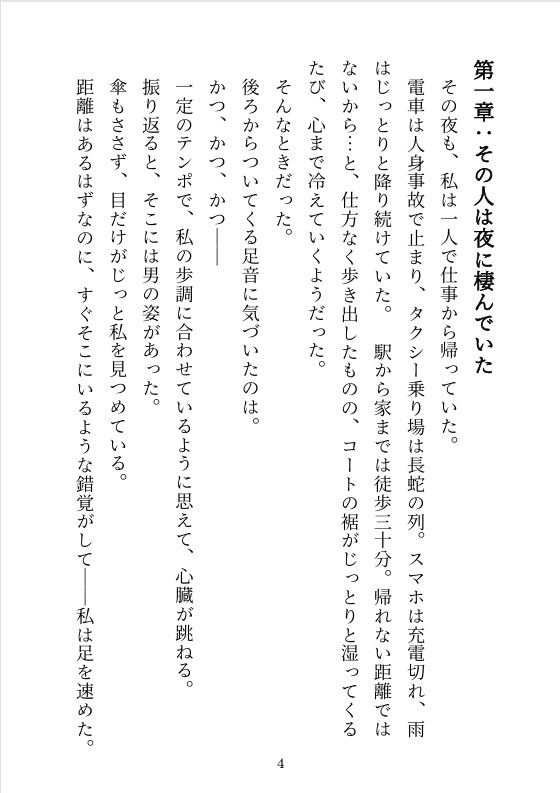 第一章：その人は夜に棲んでいた
その夜も、私は一人で仕事から帰っていた。
電車は人身事故で止まり、タクシー乗り場は長蛇の列。スマホは充電切れ、雨
はじっとりと降り続けていた。　駅から家までは徒歩三十分。帰れない距離では
ないから…と、仕方なく歩き出したものの、コートの裾がじっとりと湿ってくる
たび、心まで冷えていくようだった。
そんなときだった。
後ろからついてくる足音に気づいたのは。
かつ、かつ、かつ――
一定のテンポで、私の歩調に合わせているように思えて、心臓が跳ねる。
振り返ると、そこには男の姿があった。
傘もささず、目だけがじっと私を見つめている。
距離はあるはずなのに、すぐそこにいるような錯覚がして――私は足を速めた。
4